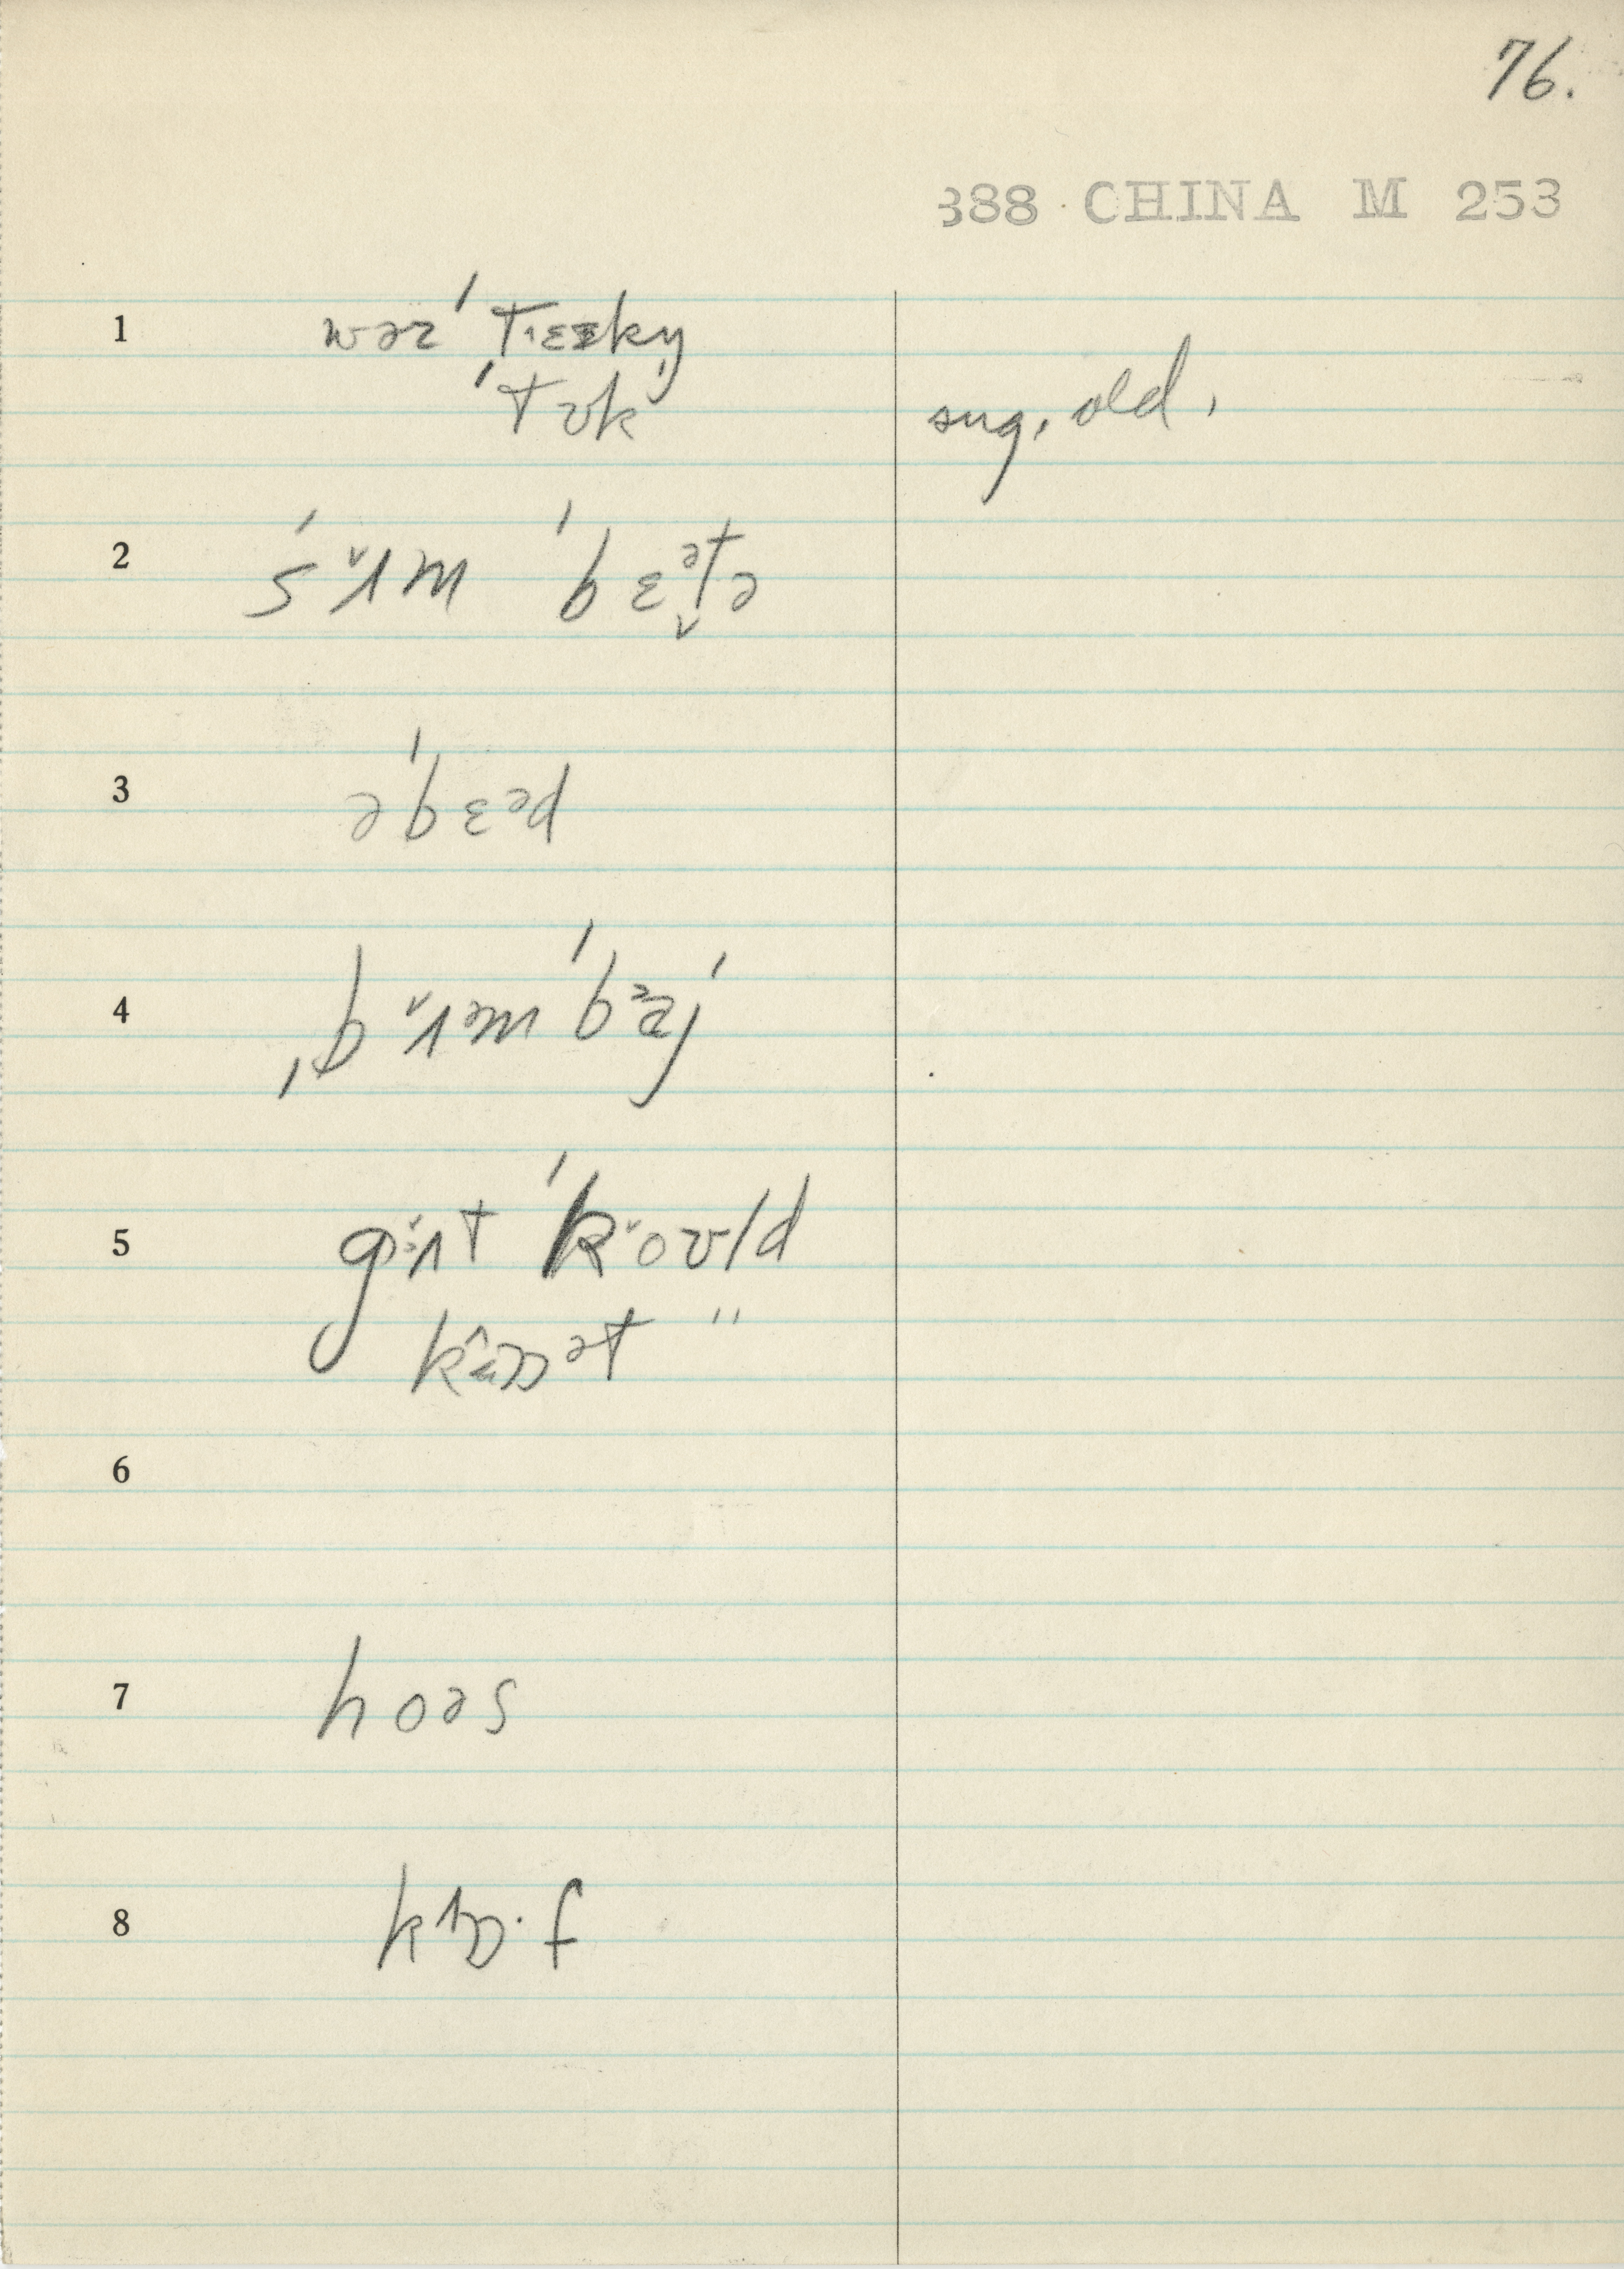 76.
388 CHINA M 253
1 wəz ˈtɛɛkŋ
ˈtʊk sug. old.
2 sʌm ˈbɛᵊt̬ə
3 əˈbɛᵊd
4 ˌbʌᵊmˈbaj
5 gɪʌt ˈkoʊld
kɒᵊt "
6
7 hoəs
8 kɒ·f